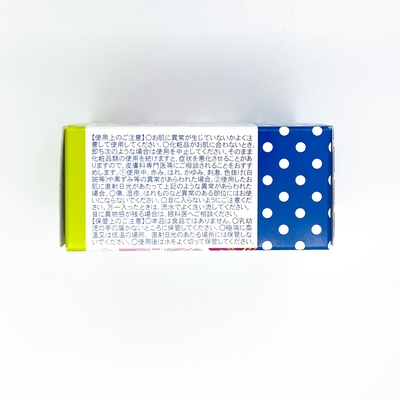 【使用上のご注意】〇お肌に異常が生じていないかよく注
意して使用してください。〇化粧品がお肌に合わないとき、
即ち次のような場合は使用を中止してください。そのまま
化粧品類の使用を続けますと、症状を悪化させることがあ
りますので、皮膚科専門医等にご相談されることをおすす
めします。①使用中、赤み、はれ、かゆみ、刺激、色抜け(白
斑等)や黒ずみ等の異常があらわれた場合。②使用したお
肌に直射日光があたって上記のような異常があらわれた
場合。〇傷、湿疹、はれものなど異常のある部位にはお使
いにならないでください。〇目に入らないようにご注意くださ
い。万一入ったときは、流水でよく洗い流してください。
目に異物感が残る場合は、眼科医へご相談ください。
【保管上のご注意】〇本品は食品ではありません。〇乳幼
児の手の届かないところに保管してください。〇極端に高
温又は低温の場所、直射日光のあたる場所には保管しな
いでください。〇使用後は水をよく切って保管してください。